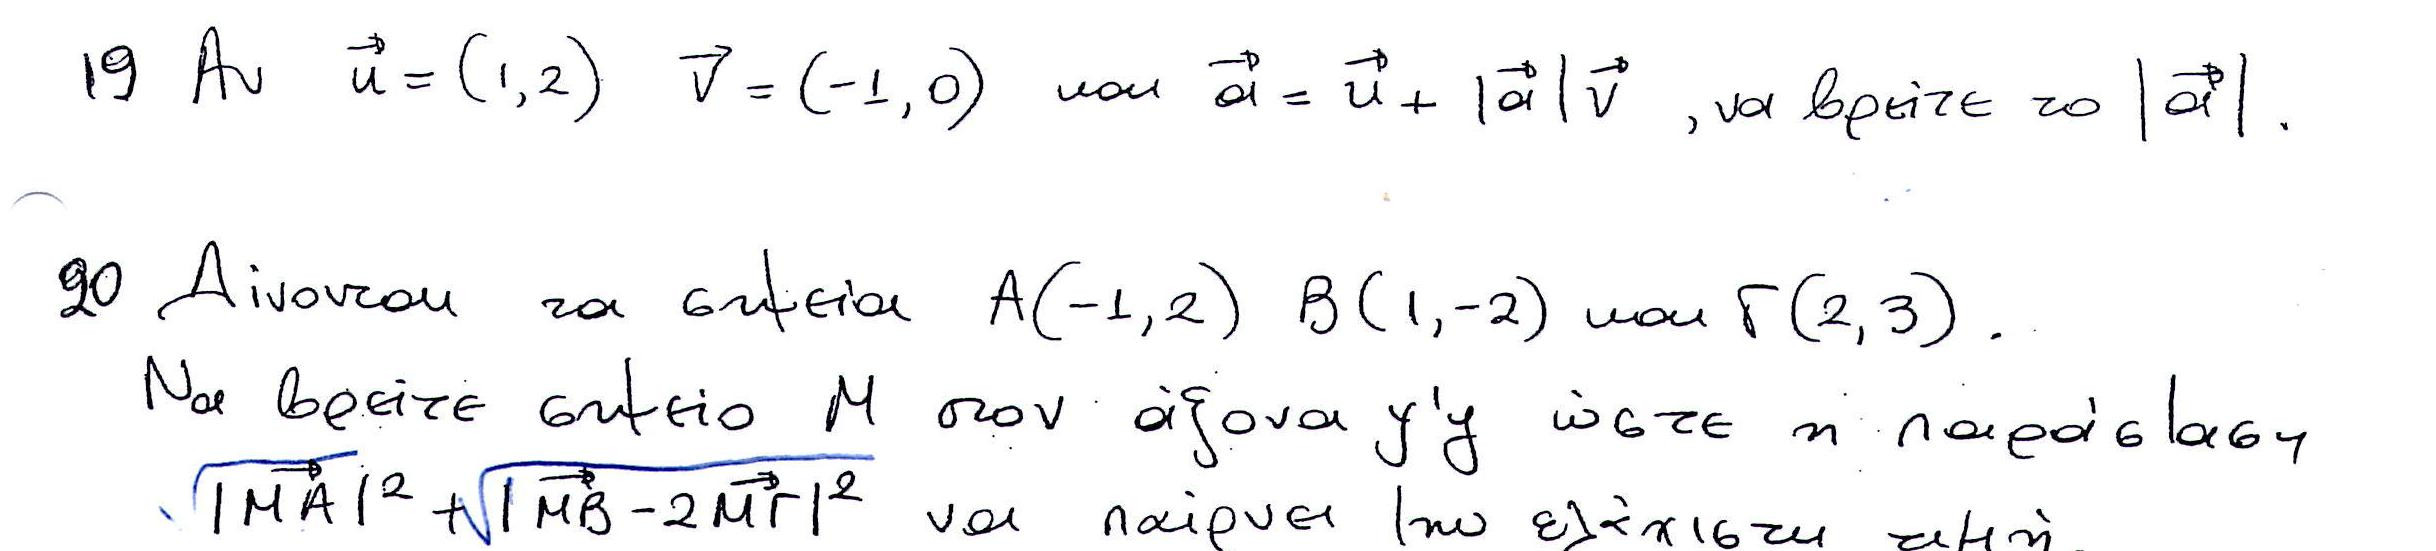 19 Αν u⃗ = (1,2) v⃗ = (-1,0) και α⃗ = u⃗ + |α⃗|v⃗ , να βρείτε το |α⃗|.
20 Δίνονται τα σημεία Α(-1,2) Β(1,-2) και Γ(2,3).
Να βρείτε σημείο Μ στον άξονα y'y ώστε η παράσταση
√|ΜΑ⃗|² + √|ΜΒ⃗ - 2ΜΓ⃗|² να παίρνει την ελάχιστη τιμή.